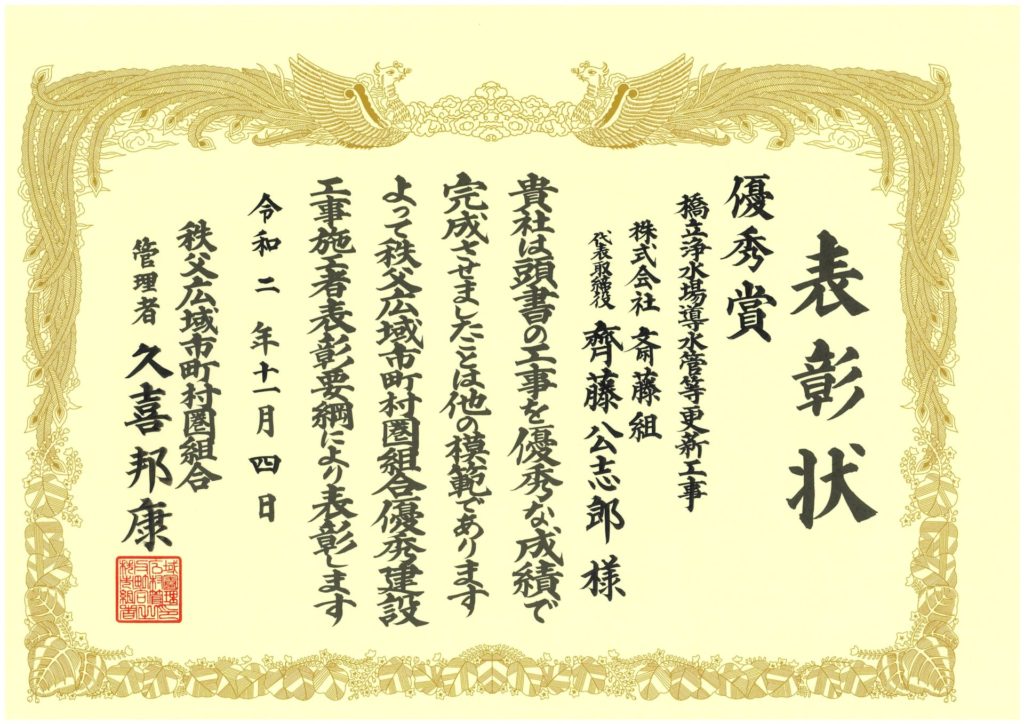 表彰状
優秀賞
橋立浄水場導水管等更新工事
株式会社 斎藤組
代表取締役 齊藤公志郎 様
貴社は頭書の工事を優秀な成績で
完成させましたことは他の模範であります
よって秩父広域市町村圏組合優秀建設
工事施工者表彰要綱により表彰します
令和二年十一月四日
秩父広域市町村圏組合
管理者 久喜邦康